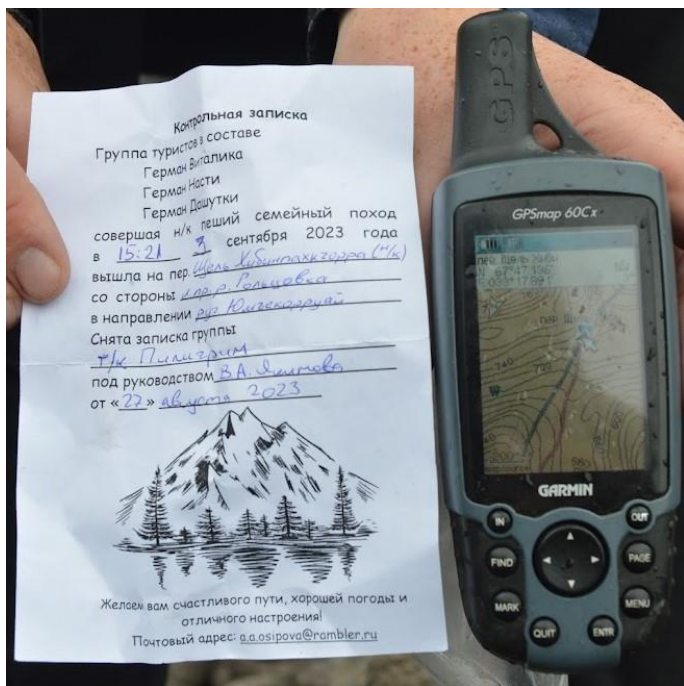 Контрольная записка
Группа туристов в составе
Герман Виталика
Герман Насти
Герман Дашутки
совершая н/к пеший семейный поход
в 15:21 3 сентября 2023 года
вышла на пер. Щель Хибинпахкчорра (н/к)
со стороны л.пр.р. Гольцовка
в направлении руч. Юмъекорруай
Снята записка группы
т/к Пилигрим
под руководством В.А.
от «27» августа 2023
Желаем вам счастливого пути, хорошей погоды и
отличного настроения!
Почтовый адрес: a.a.osipova@rambler.ru
GPS
GPSmap 60Cx
пер. Щель Хиби
N 67°47.136'
пер Щ
740
700
560
GARMIN
IN
OUT
FIND
PAGE
MARK
MENU
QUIT
ENTR